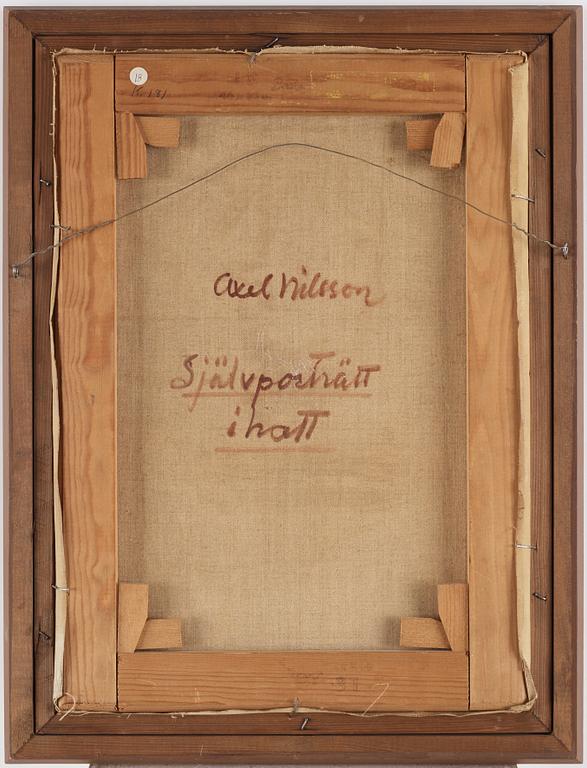 18
Axel Nilsson
Självporträtt
i hatt